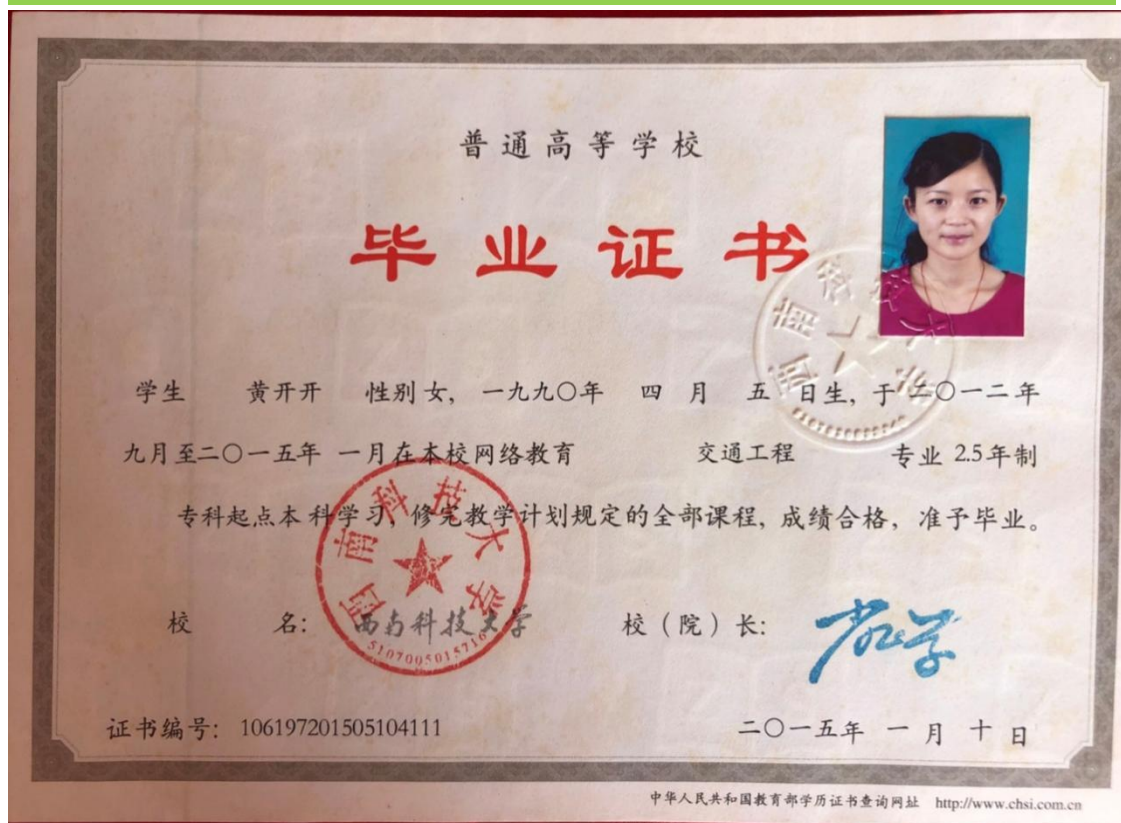 普通高等学校
毕业证书
学生 黄开开 性别 女, 一九九〇年 四 月 五 日生, 于 二〇一二年
九月至二〇一五年 一月在本校网络教育 交通工程 专业 2.5年制
专科起点本科学习, 修完教学计划规定的全部课程, 成绩合格, 准予毕业。
校 名: 西南科技大学 校（院）长:
西南科技大学
5107005015716
证书编号: 106197201505104111 二〇一五年 一月 十 日
中华人民共和国教育部学历证书查询网址 http://www.chsi.com.cn